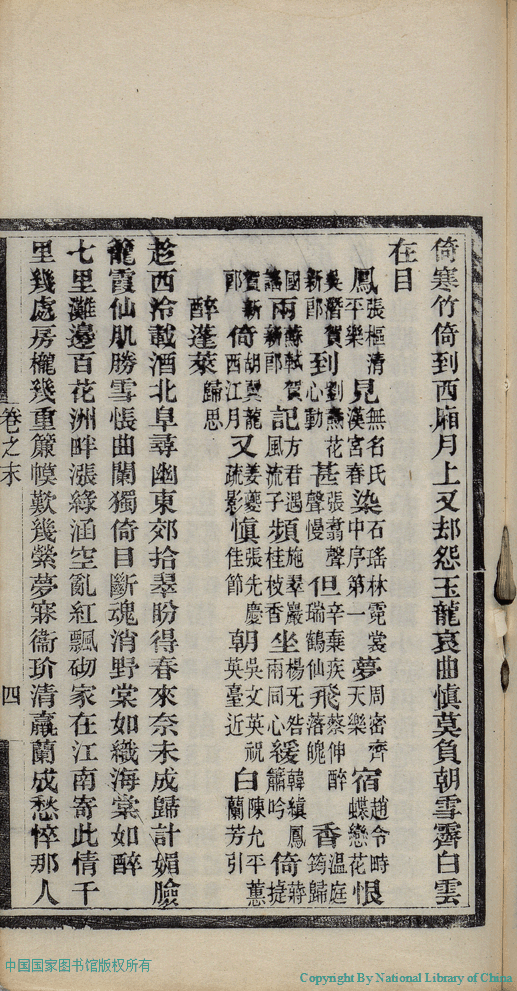 倚寒竹倚到西廂月上又却怨玉龍哀曲慎莫負朝雪霽白雲
在目
鳳張樞清平樂見無名氏漢宮春染石瑤林霓裳中序第一夢周密齊天樂宿趙令畤蝶戀花恨
吳潛賀新郎到劉燾花心動甚張翥聲聲慢但辛棄疾瑞鶴仙飛蔡伸醉落魄香温庭筠歸
國謠雨蘇軾賀新郎記方君遇風流子頻施翠巖桂枝香坐楊旡咎雨同心緩韓縝鳳簫吟倚蔣捷
賀新郎倚胡翼龍西江月又姜夔疏影慎張先慶佳節朝吳文英祝英臺近白陳允平蕙蘭芳引
醉蓬萊歸思
趁西泠載酒北阜尋幽東郊拾翠盼得春來奈未成歸計媚臉
籠霞仙肌勝雪悵曲闌獨倚目斷魂消野棠如織海棠如醉
七里灘邊百花洲畔漲綠涵空亂紅飄砌家在江南寄此情千
里幾處房櫳幾重簾幙歎幾縈夢寐衞玠清羸蘭成愁悴那人
卷之末
四
中国国家图书馆版权所有
Copyright By National Library of China